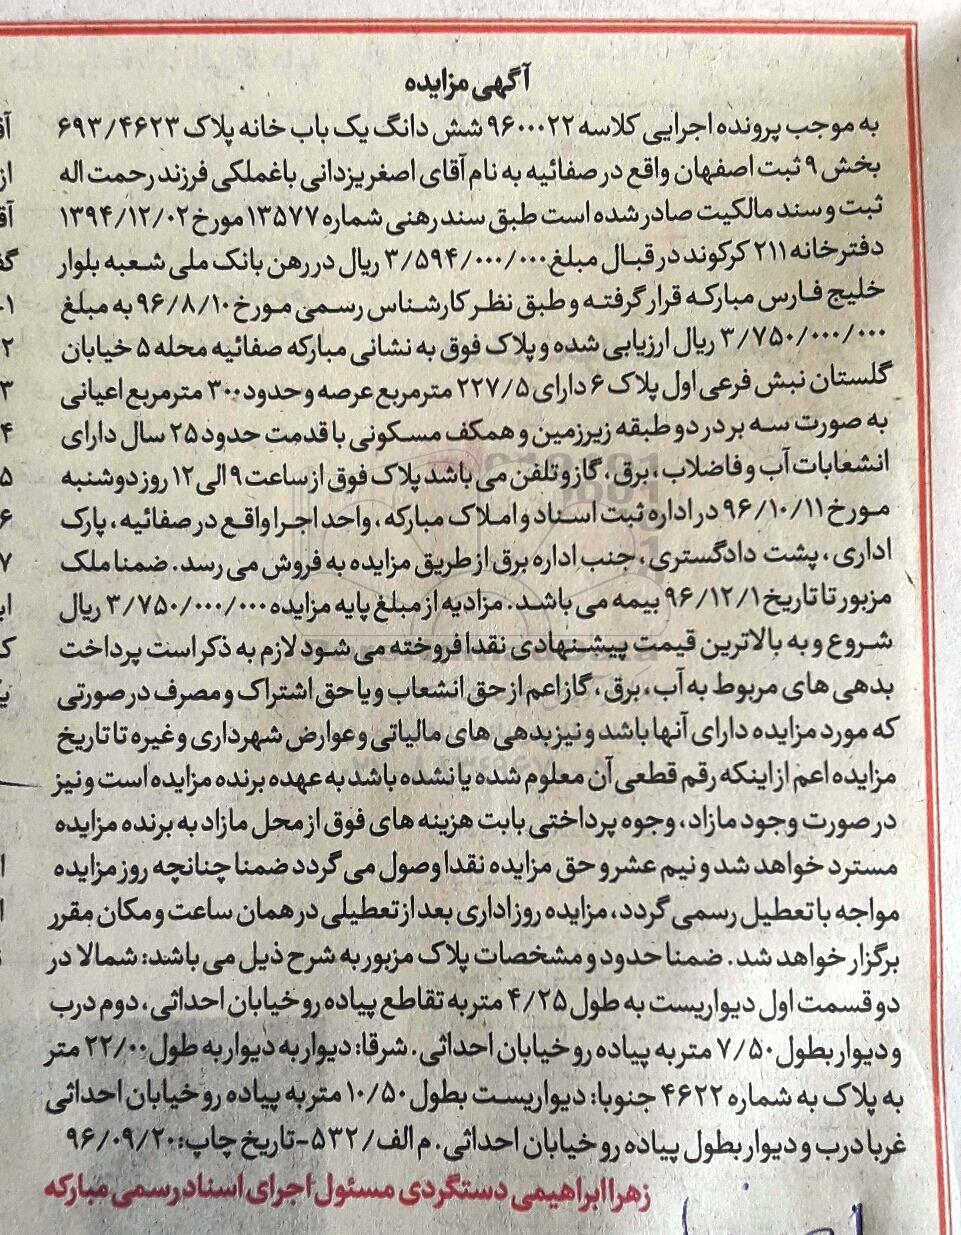 آگهی مزایده
به موجب پرونده اجرایی کلاسه ۹۶۰۰۰۲۲ شش دانگ یک باب خانه پلاک ۶۹۳/۴۶۲۳
بخش ۹ ثبت اصفهان واقع در صفائیه به نام آقای اصغر یزدانی باغملکی فرزند رحمت اله
ثبت و سند مالکیت صادر شده است طبق سند رهنی شماره ۱۳۵۷۷ مورخ ۱۳۹۴/۱۲/۰۲
دفترخانه ۲۱۱ کرکوند در قبال مبلغ ۳/۵۹۴/۰۰۰/۰۰۰ ریال در رهن بانک ملی شعبه بلوار
خلیج فارس مبارکه قرار گرفته و طبق نظر کارشناس رسمی مورخ ۹۶/۸/۱۰ به مبلغ
۳/۷۵۰/۰۰۰/۰۰۰ ریال ارزیابی شده و پلاک فوق به نشانی مبارکه صفائیه محله ۵ خیابان
گلستان نبش فرعی اول پلاک ۶ دارای ۲۲۷/۵ مترمربع عرصه و حدود ۳۰۰ مترمربع اعیانی
به صورت سه بر در دو طبقه زیرزمین و همکف مسکونی با قدمت حدود ۲۵ سال دارای
انشعابات آب و فاضلاب، برق، گاز و تلفن می باشد پلاک فوق از ساعت ۹ الی ۱۲ روز دوشنبه
مورخ ۹۶/۱۰/۱۱ در اداره ثبت اسناد و املاک مبارکه، واحد اجرا واقع در صفائیه، پارک
اداری، پشت دادگستری، جنب اداره برق از طریق مزایده به فروش می رسد. ضمنا ملک
مزبور تا تاریخ ۹۶/۱۲/۱ بیمه می باشد. مزادیه از مبلغ پایه مزایده ۳/۷۵۰/۰۰۰/۰۰۰ ریال
شروع و به بالاترین قیمت پیشنهادی نقدا فروخته می شود لازم به ذکر است پرداخت
بدهی های مربوط به آب، برق، گاز اعم از حق انشعاب و یا حق اشتراک و مصرف در صورتی
که مورد مزایده دارای آنها باشد و نیز بدهی های مالیاتی و عوارض شهرداری و غیره تا تاریخ
مزایده اعم از اینکه رقم قطعی آن معلوم شده یا نشده باشد به عهده برنده مزایده است و نیز
در صورت وجود مازاد، وجوه پرداختی بابت هزینه های فوق از محل مازاد به برنده مزایده
مسترد خواهد شد و نیم عشر و حق مزایده نقدا وصول می گردد ضمنا چنانچه روز مزایده
مواجه با تعطیل رسمی گردد، مزایده روز اداری بعد از تعطیلی در همان ساعت و مکان مقرر
برگزار خواهد شد. ضمنا حدود و مشخصات پلاک مزبور به شرح ذیل می باشد: شمالا در
دو قسمت اول دیواریست به طول ۴/۲۵ متر به تقاطع پیاده رو خیابان احداثی، دوم درب
و دیوار بطول ۷/۵۰ متر به پیاده رو خیابان احداثی. شرقا: دیوار به دیوار به طول ۲۲/۰۰ متر
به پلاک به شماره ۴۶۲۲ جنوبا: دیواریست بطول ۱۰/۵۰ متر به پیاده رو خیابان احداثی
غربا درب و دیوار بطول پیاده رو خیابان احداثی. م الف/ ۵۳۲-تاریخ چاپ: ۹۶/۰۹/۲۰
زهرا ابراهیمی دستگردی مسئول اجرای اسناد رسمی مبارکه